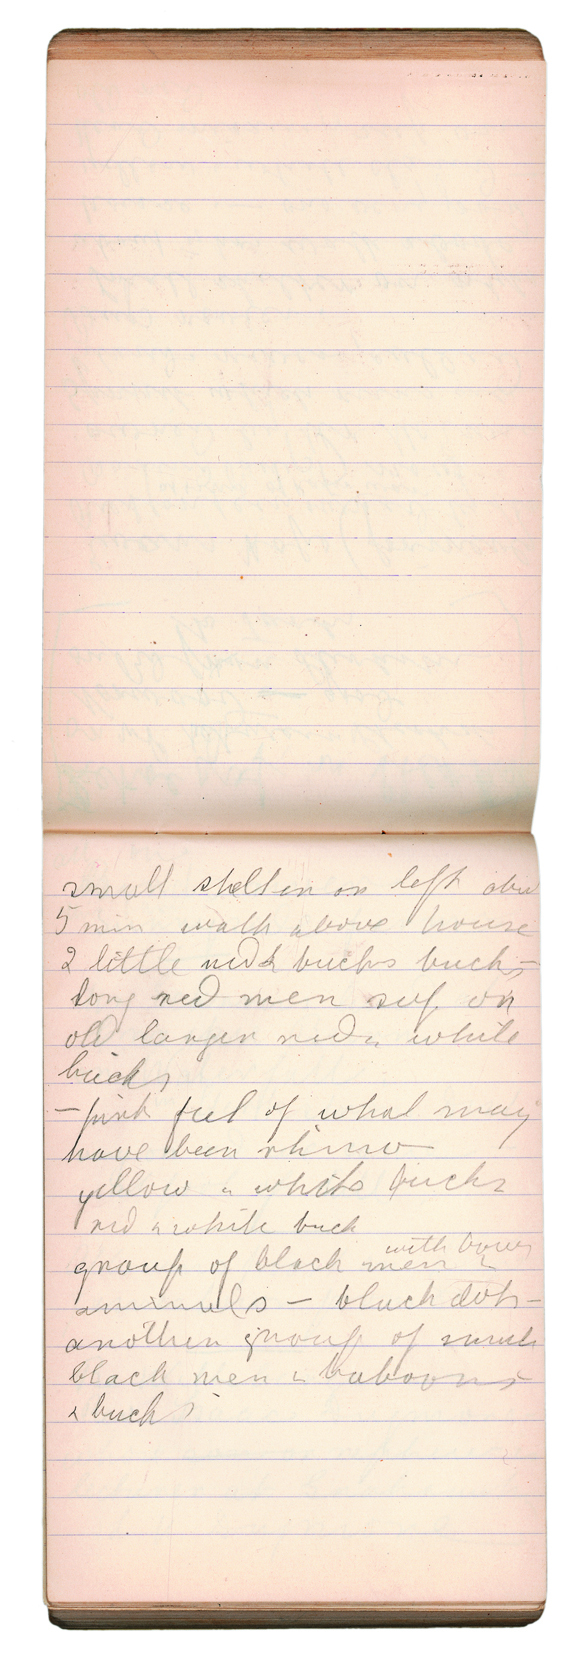 small shelter on left abou
5 min walk above house
2 little red & bucks bucks –
long red men sup. on
old larger red & white
bucks
– pink feet of what may
have been rhino –
yellow & white bucks
red & white buck
with bows
group of black men &
animals – black dots –
another group of small
black men & baboons
& bucks